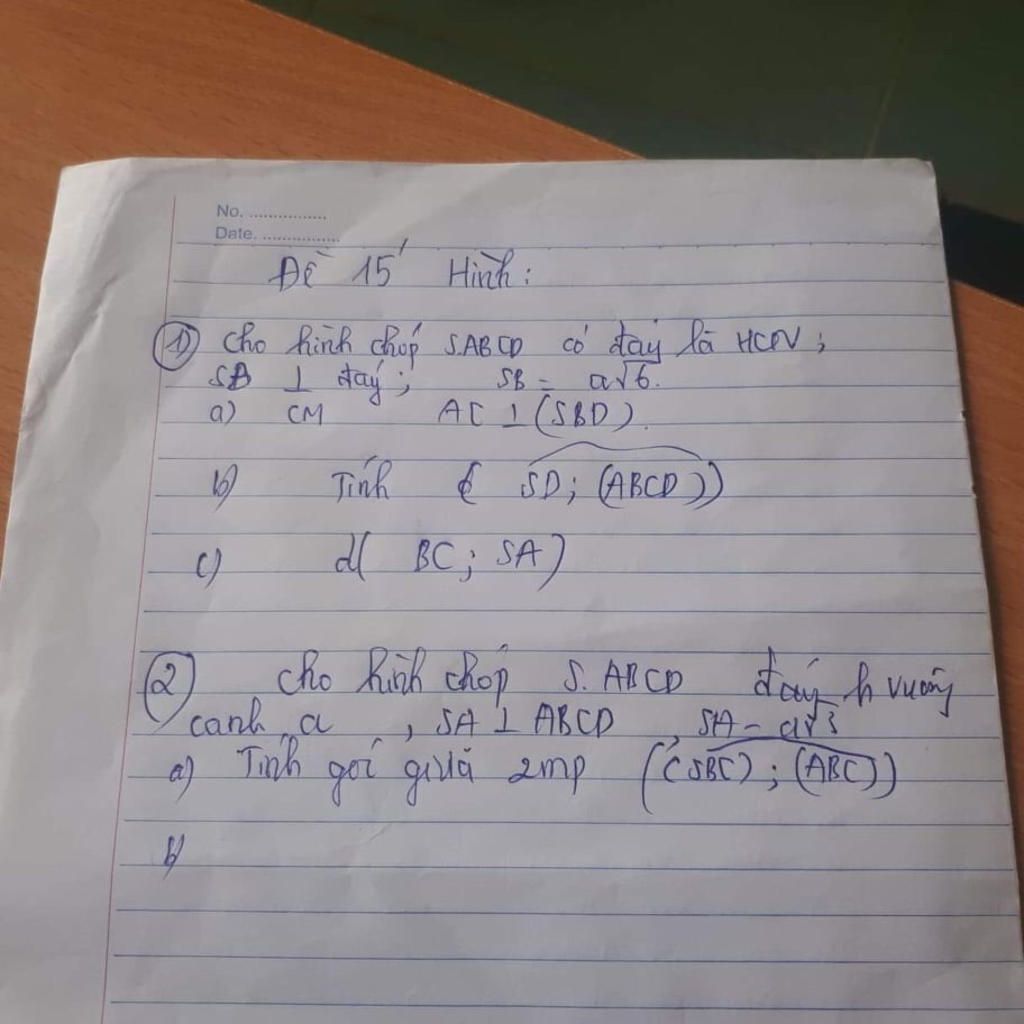 No. ................
Date. ................
Đề 15' Hình:
1) Cho hình chóp S.ABCD có đáy là HCDV;
SB ⊥ đáy; SB = a√6.
a) CM AC ⊥ (SBD).
b) Tính ( SD; (ABCD))
c) d( BC; SA)
2) Cho hình chóp S.ABCD đáy h vuông
cạnh a , SA ⊥ ABCD , SA = a√3
a) Tính góc giữa 2mp ((SBC); (ABC))
b)